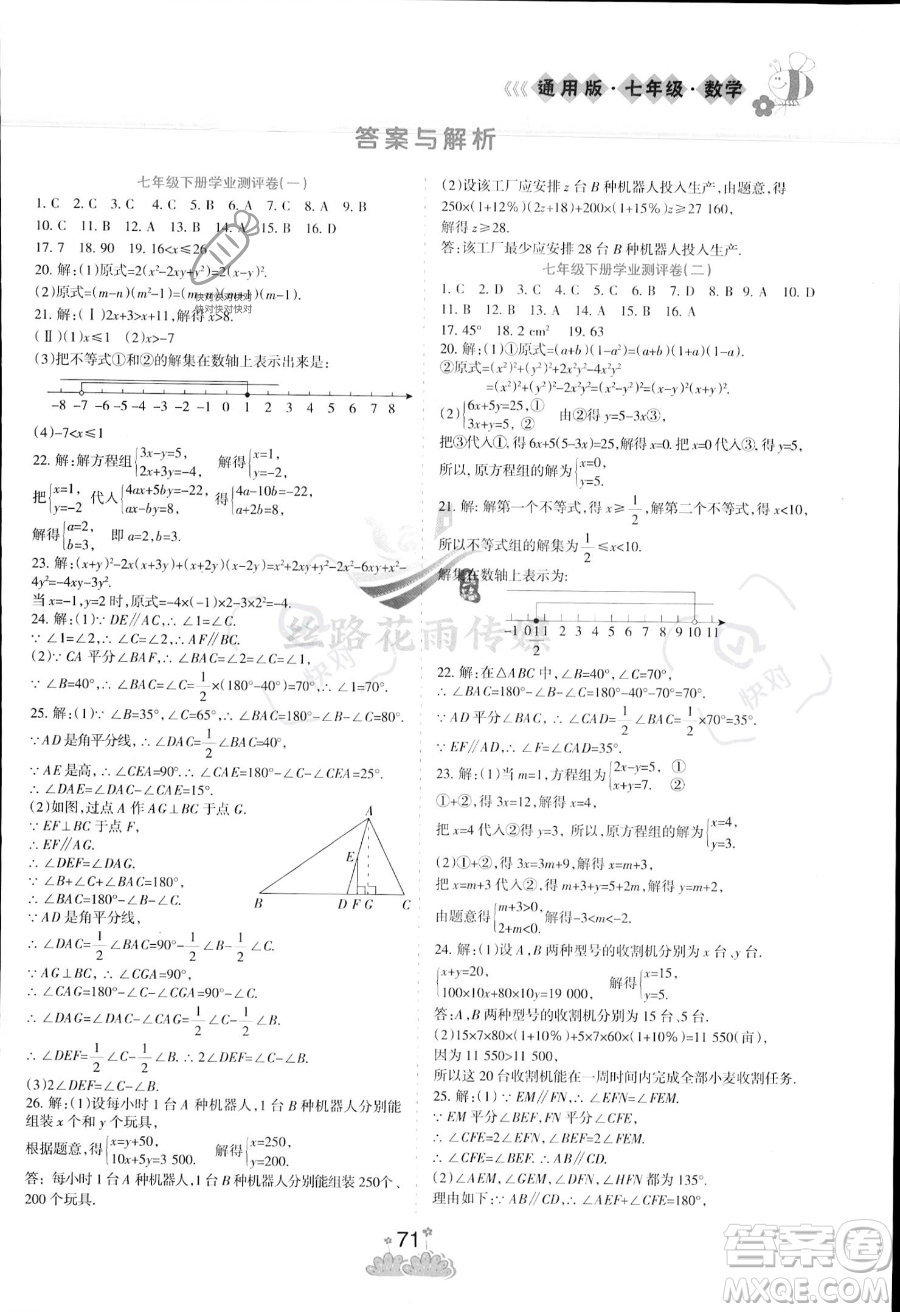 通用版·七年级·数学
答案与解析
七年级下册学业测评卷(一)
1. C 2. C 3. C 4. C 5. B 6. A 7. C 8. A 9. B
10. C 11. C 12. A 13. B 14. A 15. B 16. D
17. 7 18. 90 19. 16<x≤26
20. 解:(1)原式=2(x²-2xy+y²)=2(x-y)²
(2)原式=(m-n)(m²-1)=(m-n)(m+1)(m-1).
21. 解:(Ⅰ)2x+3>x+11,解得x>8.
快对快对快对
快对快对快对
(Ⅱ)(1)x≤1 (2)x>-7
(3)把不等式①和②的解集在数轴上表示出来是:
-8 -7 -6 -5 -4 -3 -2 -1 0 1 2 3 4 5 6 7 8
(4)-7<x≤1
22. 解:解方程组{3x-y=5, 2x+3y=-4, 解得{x=1, y=-2.
把{x=1, y=-2 代入{4ax+5by=-22, ax-by=8, 得{4a-10b=-22, a+2b=8.
解得{a=2, b=3. 即 a=2,b=3.
23. 解:(x+y)²-2x(x+3y)+(x+2y)(x-2y)=x²+2xy+y²-2x²-6xy+x²-
4y²=-4xy-3y².
当 x=-1,y=2时,原式=-4×(-1)×2-3×2²=-4.
24. 解:(1)∵ DE∥AC,∴ ∠1=∠C.
∵ ∠1=∠B,∴ ∠B=∠C.
(2)∵ CA 平分∠BAF,∴ ∠BAC=∠CAF,
∵ ∠B=40°,∴ ∠BAC=1/2×(180°-40°)=70°,∴ ∠1=70°.
25. 解:(1)∵ ∠B=35°,∠C=65°,∴ ∠BAC=180°-∠B-∠C=80°.
∵ AD是角平分线,∴ ∠DAC=1/2∠BAC=40°,
∵ AE是高,∴ ∠CEA=90°,∴ ∠CAE=180°-∠C-∠CEA=25°.
(2)如图,过点 A 作 AG⊥BC 于点 G.
∵ EF⊥BC 于点 F,
∴ EF∥AG.
∴ ∠DEF=∠DAG.
∵ ∠B+∠C+∠BAC=180°,
∴ ∠BAC=180°-∠B-∠C.
∵ AD是角平分线,
A
B D F G C
∴ ∠DAC=1/2∠BAC=90°-1/2∠B-1/2∠C.
∵ AG⊥BC,∴ ∠CGA=90°.
∴ ∠CAG=180°-∠C-∠CGA=90°-∠C.
∴ ∠DAG=∠DAC-∠CAG=1/2∠C-1/2∠B.
∴ ∠DEF=1/2∠C-1/2∠B.
(3)2∠DEF=∠C-∠B.
26. 解:(1)设每小时 1 台 A 种机器人,1 台 B 种机器人分别能
组装 x 个和 y 个玩具,
根据题意,得{x=y+50, 10x+5y=3 500. 解得{x=250, y=200.
答: 每小时 1 台 A 种机器人,1 台 B 种机器人分别能组装 250个、
200 个玩具.
(2)设该工厂应安排 z 台 B 种机器人投入生产,由题意,得
250×(1+12%)(2z+18)+200×(1+12%)z≥27 160,
解得 z≥28.
答:该工厂最少应安排 28 台 B 种机器人投入生产.
七年级下册学业测评卷(二)
1. C 2. D 3. C 4. B 5. B 6. B 7. C 8. D 9. A 10. D
11. B 12. B 13. B 14. A 15. B 16. A
17. 45° 18. 2 cm² 19. 63
20. 解:(1)①原式=(a+b)(1-a²)=(a+b)(1-a)(1+a).
②原式=(x²)²+(y²)²-4x²y²+2x²y²
=(x²)²+(y²)²-2x²y²=(x²-y²)²=(x-y)²(x+y)².
(2){6x+5y=25,① 3x+y=5, ② 由②得 y=5-3x③,
把③代入①,得 6x+5(5-3x)=25,解得x=0. 把x=0代入③得y=5,
所以,原方程组的解为{x=0, y=5.
21. 解: 解第一个不等式,得 x≥1/2,解第二个不等式,得x<10.
所以不等式组的解集为1/2≤x<10.
解集在数轴上表示为:
-1 0 1/2 1 2 3 4 5 6 7 8 9 10 11
22. 解:在△ABC 中,∠B=40°,∠C=70°,
∴ ∠BAC=180°-∠B-∠C=180°-40°-70°=70°.
∵ AD 平分∠BAC,∴ ∠BAD=1/2∠BAC=1/2×70°=35°.
∵ EF∥AD,∴ ∠BEF=∠BAD=35°.
23. 解:(1)当 m=1,方程组为{2x-y=5, ① x+y=7. ②
①+②,得 3x=12,解得 x=4,
把 x=4 代入②得y=3, 所以,原方程组的解为{x=4, y=3.
(2)①+②,得 3x=3m+9,解得 x=m+3,
把 x=m+3 代入②,得 m+3+y=m+6,解得 y=3,
由题意得{m+3>0, 2m+4<0.解得-3<m<-2.
24. 解:(1)设 A,B 两种型号的收割机分别为 x 台、y 台.
{x+y=20, 100×10x+80×10y=19 000, 解得{x=15, y=5.
答:A,B 两种型号的收割机分别为 15 台、5 台.
(2)15×7×80×(1+10%)+5×7×60×(1+10%)=11 550(亩),
因为 11 550>11 500,
所以这 20 台收割机能在一周时间内完成全部小麦收割任务.
25. 解:(1)∵ EM∥FN,∴ ∠FEM=∠EFN,
∵ EM 平分∠BEF,FN 平分∠CFE,
∴ ∠CFE=∠BEF,∴ AB∥CD.
(2)∠AEM、∠GEM、∠DFN、∠HFN,
理由如下:∵ AB∥CD,∴ ∠AEF+∠CFE=180°,
71
丝路花雨传媒
快对
快对
答案卷
MXQE.COM